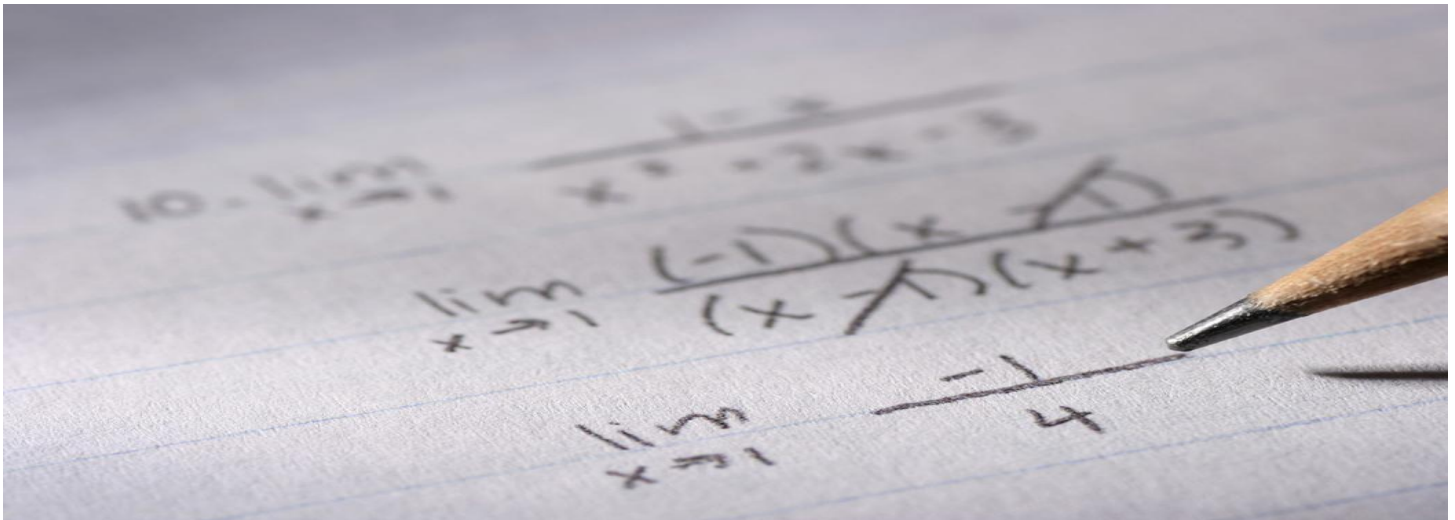 10. lim x→1 1 - x / x² + 2x - 3
lim x→1 (-1)(x - 1) / (x - 1)(x + 3)
lim x→1 -1 / 4